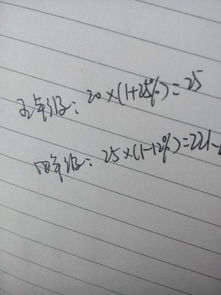 五年级：20×(1+25%)=25
四年级：25×(1-12%)=22